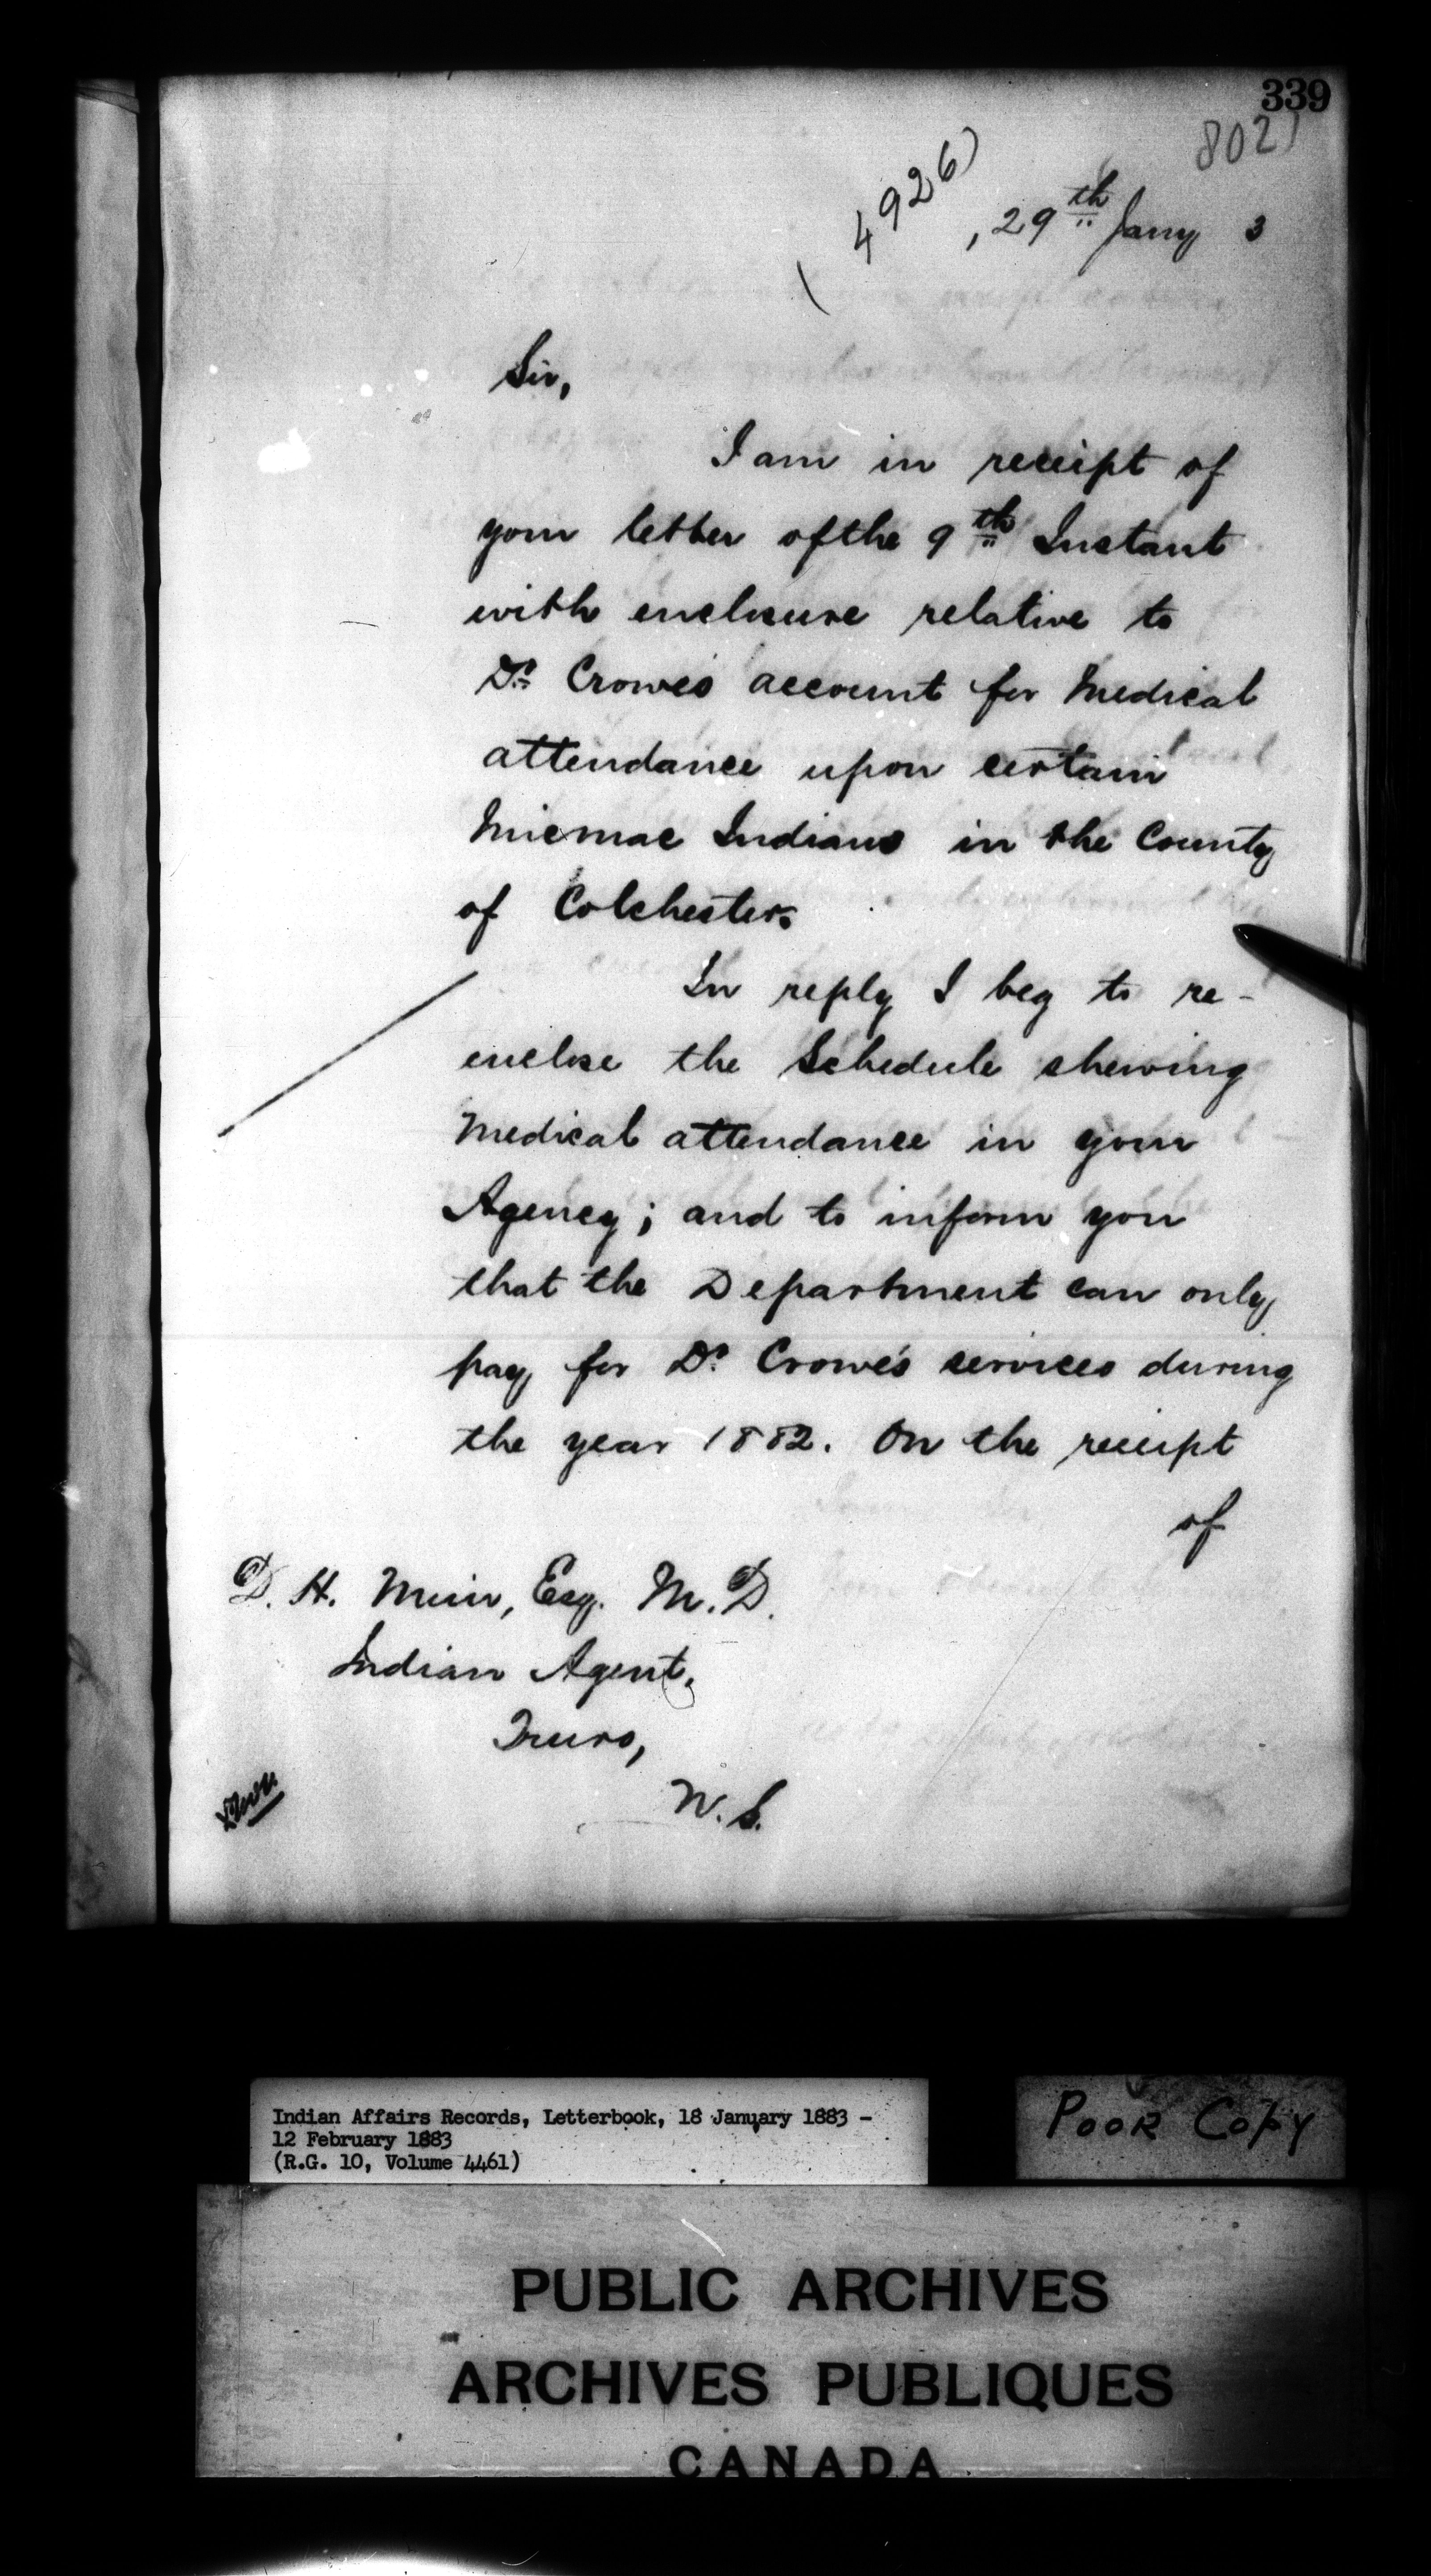 339
802)
(4926)
, 29th Jany 3
Sir,
I am in receipt of
your letter of the 9th Instant
with enclosure relative to
Dr. Crowe's account for Medical
attendance upon certain
Micmac Indians in the County
of Colchester.
In reply I beg to re-
enclose the Schedule shewing
Medical attendance in your
Agency; and to inform you
that the Department can only
pay for Dr. Crowe's services during
the year 1882. On the receipt
of
D. H. Muir, Esq. M.D.
Indian Agent,
Truro,
N.S.
Indian Affairs Records, Letterbook, 18 January 1883 -
12 February 1883
(R.G. 10, Volume 4461)
Poor Copy
PUBLIC ARCHIVES
ARCHIVES PUBLIQUES
CANADA